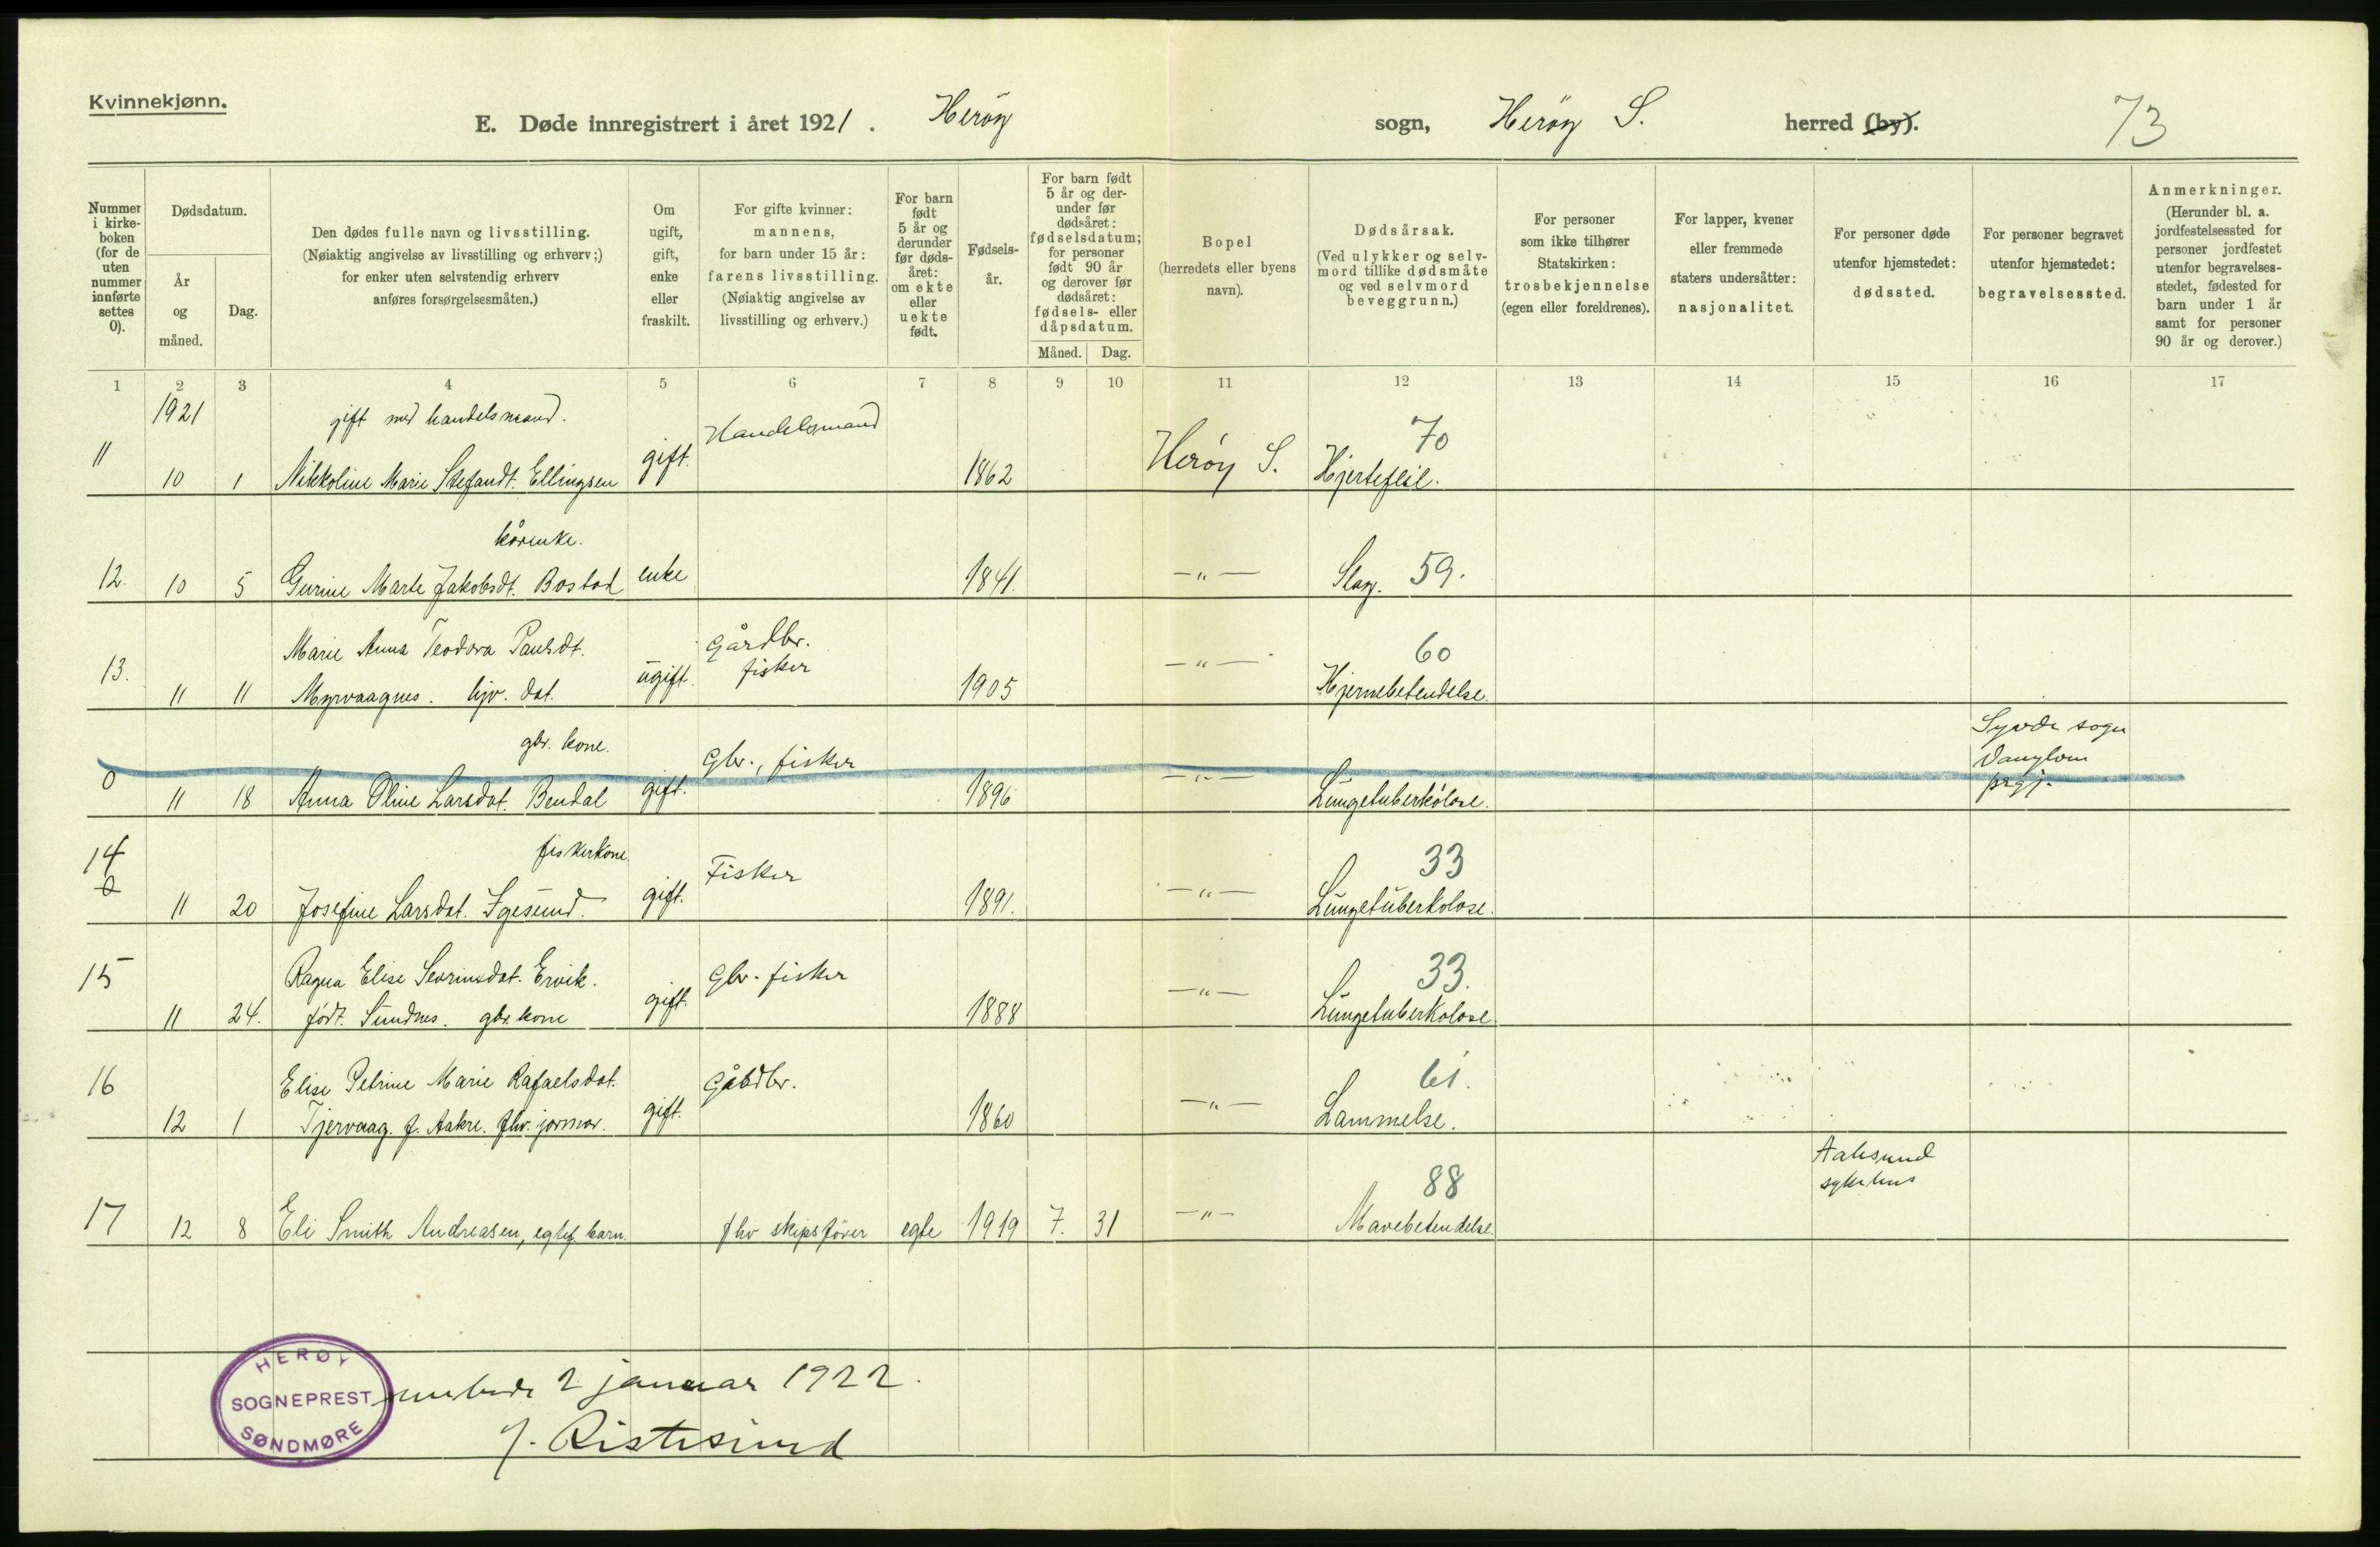 Kvinnekjønn.
E. Døde innregistrert i året 1921. Herøy sogn, Herøy S. herred (by). 73
Nummer i kirkeboken (for de uten nummer innførte settes 0).
Dødsdatum.
År og måned.
Dag.
Den dødes fulle navn og livsstilling.
(Nøiaktig angivelse av livsstilling og erhverv;)
for enker uten selvstendig erhverv
anføres forsørgelsesmåten.)
Om ugift, gift, enke eller fraskilt.
For gifte kvinner:
mannens,
for barn under 15 år:
farens livsstilling.
(Nøiaktig angivelse av
livsstilling og erhverv.)
For barn født 5 år og derunder før dødsåret: om ekte eller uekte født.
Fødselsår.
For barn født 5 år og derunder før dødsåret: fødselsdatum; for personer født 90 år og derover før dødsåret: fødsels- eller dåpsdatum.
Måned. Dag.
Bopel
(herredets eller byens
navn).
Dødsårsak.
(Ved ulykker og selvmord tillike dødsmåte
og ved selvmord
beveggrunn.)
For personer
som ikke tilhører
Statskirken:
trosbekjennelse
(egen eller foreldrenes).
For lapper, kvener
eller fremmede
staters undersåtter:
nasjonalitet.
For personer døde
utenfor hjemstedet:
dødssted.
For personer begravet
utenfor hjemstedet:
begravelsessted.
Anmerkninger.
(Herunder bl. a.
jordfestelsessted for
personer jordfestet
utenfor begravelsesstedet, fødested for
barn under 1 år
samt for personer
90 år og derover.)
1 2 3 4 5 6 7 8 9 10 11 12 13 14 15 16 17
1921 gift med handelsmand. Handelsmand 70
11 10 1 Nikkoline Marie Stefandt. Ellingsen gift. 1862 Herøy S. Hjertefeil.
kårenke.
12. 10 5 Gurine Marte Jakobsdt. Bostad enke 1841. —"— Slag. 59.
Marie Anna Teodora Paulsdt. Gårdbr. 60
13. 11 11 Myrvaagnes. hjv. dat. ugift. fisker 1905 —"— Hjernebetendelse.
gbr. kone. Gbr., fisker Syvde sogn
0 11 18 Anna Oline Larsdat. Bendal gift. 1896 —"— Lungetuberkolose. Vanylven prgj.
14 fiskerkone Fisker 33
0 11 20 Josefine Larsdat. Igesund. gift. 1891. —"— Lungetuberkolose.
15 Ragna Elise Sevrinsdat. Ervik. Gbr. fisker 33.
11 24. født. Sundnes. gbr. kone gift. 1888 —"— Lungetuberkolose
16 Elise Petrine Marie Rafaelsdat. Gårdbr. 61.
12 1 Tjervaag. f. Aakre. fhv. jormor. gift. 1860 —"— Lammelse.
88 Aalesund sykehus
17 12 8 Eli Smith Andreasen, egtef. barn. fhv skipsfører egte 1919 7. 31 —"— Mavebetendelse.
HERØY
SOGNEPREST
SØNDMØRE
embede 2 januar 1922.
J. Ristesund